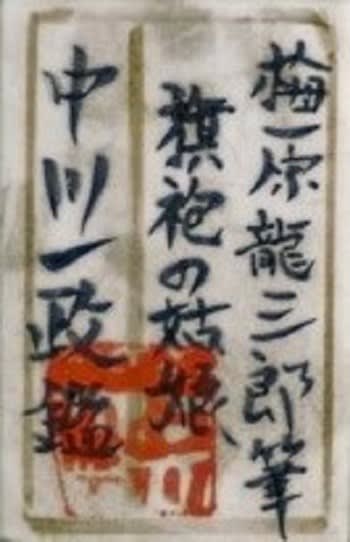 梅原龍三郎筆
旗袍の姑娘
中川一政鑑